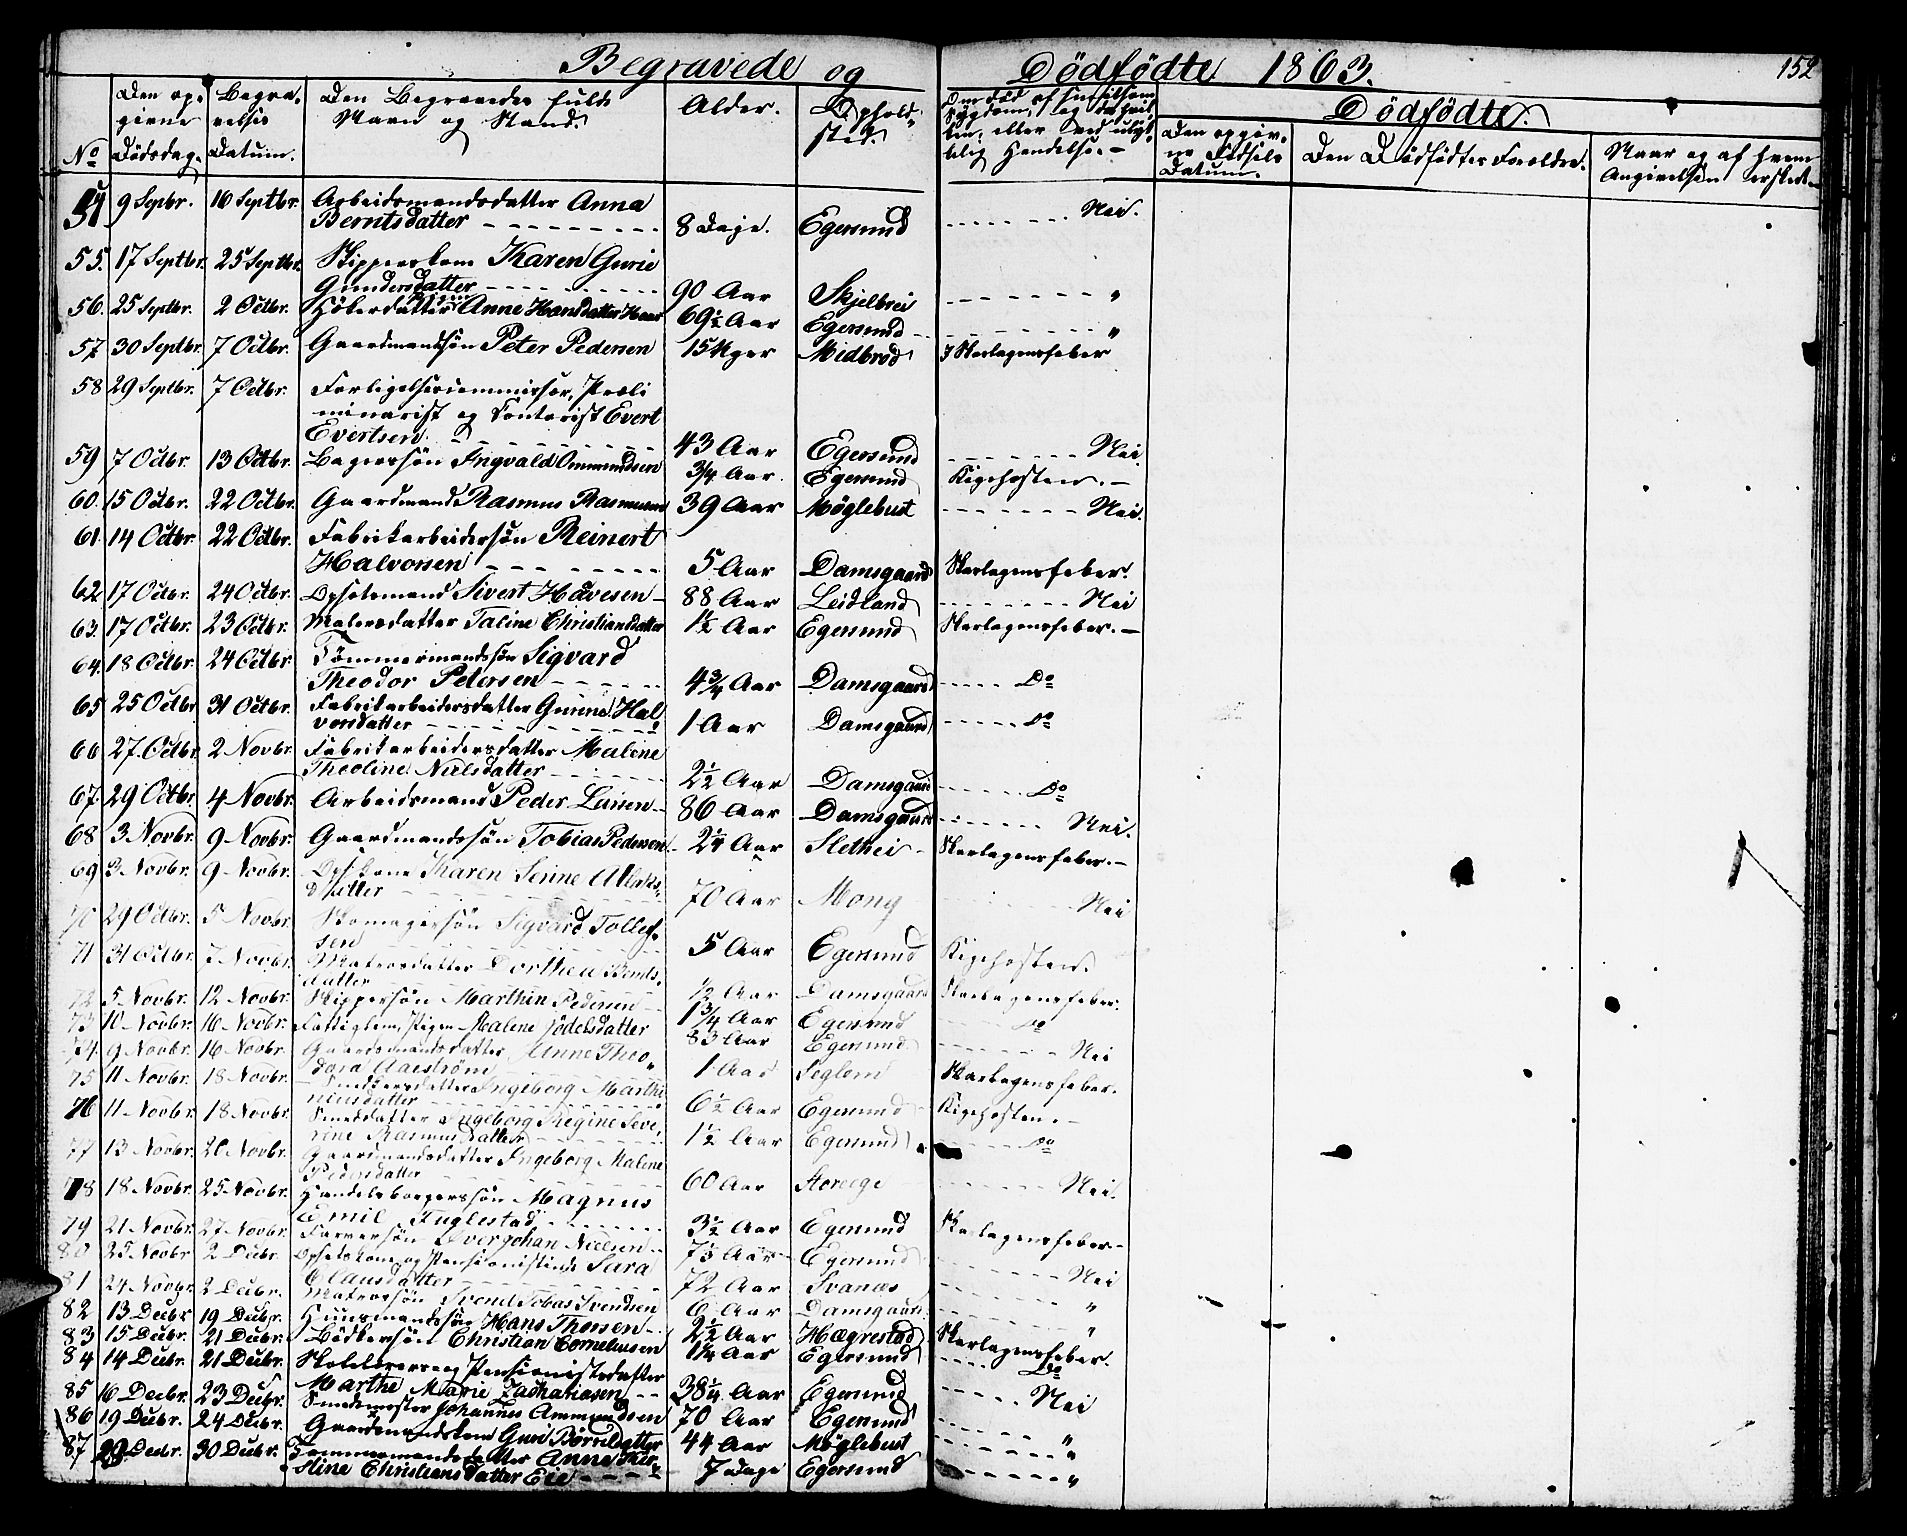 Begravede og Dödfödte 1863.
152
No
Den op-
givne
Dödsdag.
Begra-
velses
Datum.
Den Begravedes fulde
Navn og Stand.
Alder.
Ophold-
sted.
Dödfödte.
Den opgiv-
ne Födsels
Datum.
Den Dödfödtes Forældre.
Naar og af hvem
Angivelsen er skeet.
54 9 Septbr. 16 Septbr. Arbeidsmandsdatter Anna
Berntsdatter - - - 8 Dage. Egersund - - - Nei.
55. 17 Septbr. 25 Septbr. Skipperskone Karen Gurie
Gundersdatter - - - 90 Aar Skjelbrei - - - "
56. 25 Septbr. 2 Octbr. Hökerdatter Anne Hansdatter Haar 69½ Aar Egersund - - - "
57 30 Septbr. 7 Octbr. Gaardmandsön Peter Pedersen 15 Uger Midbrod Skarlagensfeber
58 29 Septbr. 7 Octbr. Forligelsescommissær, Præli
minarist og Contorist Evert
Evertsen - - - 43 Aar Egersund - - - Nei.
59 7 Octbr. 13 Octbr. Bagersön Ingvald Ommundsen 3/4 Aar. Egersund Kigehosten. -
60. 15 Octbr. 22 Octbr. Gaardmand Rasmus Rasmussen 39 Aar Møglebust - - - Nei.
61 14 Octbr. 22 Octbr. Fabrikarbeidersön Reinert
Halvorsen - - - 5 Aar Damsgaard Skarlagensfeber.
62 17 Octbr. 24 Octbr. Opsidsmand Sivert Haavesen - 88 Aar Leidland - - - Nei
63. 17 Octbr. 23 Octbr. Malersdatter Taline Christiansdatter 1½ Aar Egersund Skarlagensfeber. -
64. 18 Octbr. 24 Octbr. Tömmermandssön Sigvard
Theodor Petersen - - - 4¾ Aar Damsgaard - - - Do
65 25 Octbr. 31 Octbr. Fabrikarbeidersdatter Gunne Hal-
vorsdatter - - - 1 Aar Damsgaard - - - Do
66 27. Octbr. 2 Novbr. Fabrikarbeidersdatter Malene
Theoline Nielsdatter - - - 2½ Aar Damsgaard - - - Do
67. 29 Octbr. 4 Novbr. Arbeidsmand Peder Larsen - 86 Aar Damsgaard - - - Nei.
68 3 Novbr. 9 Novbr. Gaardmandssön Tobias Pedersen 2¼ Aar Slethei Skarlagensfeber. -
69 3 Novbr. 9 Novbr. Karen Serine
datter - - - 70 Aar Mong - - - Nei
70 29 Octbr. 5 Novbr. Skomagersön Sigvard Tollef-
sen - - - 5 Aar Egersund Kigehosten.
71 31 Octbr. 7 Novbr. Matrosdatter Dorthea Bernts-
datter - - - ½ Aar Damsgaard Skarlagensfeber.
72 5 Novbr. 12 Novbr. Skippersön Marthin Pedersen 1¾ Aar Egersund - - - Do
73 10 Novbr. 16 Novbr. Fattiglem, Pigen Malene Jödelsdatter 83 Aar Egersund - - - Nei
74. 9 Novbr. 16 Novbr. Gaardmandsdatter Anne Theo-
dora Aaeström - - - 1 Aar Seglem Skarlagensfeber.
75 11 Novbr. 18 Novbr. Ingeborg Marthi
niusdatter - - - 6½ Aar Egersund Kigehosten. -
76 11 Novbr. 18 Novbr. Smeddatter Ingeborg Regine Seve
rine Rasmusdatter - - - 1½ Aar Egersund - - - Do
77 13 Novbr. 20 Novbr. Gaardmandsdatter Ingeborg Malene
Pedersdatter - - - 60 Aar Storeige - - - Nei.
78 18 Novbr. 25 Novbr. Handelsborgersön Magnus
Emil Fuglestad - - - 3½ Aar Egersund Skarlagensfeber -
79 21 Novbr. 27 Novbr. Farversön Sverjohan Nielsen - 7½ Aar Egersund
80 25 Novbr. 2 Decbr. Opsidskone og Pensionistinde Sara
Clausdatter - - - 72 Aar Svanæs - - - Nei
81 24 Novbr. 2 Decbr. Matrossön Svend Tobias Svendsen 6 Aar Damsgaard - - - "
82 13 Decbr. 19 Decbr. Huusmandssön Hans Thorsen - 2½ Aar Hægrestad - - - "
83 15 Decbr. 21 Decbr. Bödkersön Christian Corneliussen 1¼ Aar Egersund Skarlagensfeber.
84 14 Decbr. 21 Decbr. Skolelærer og Pensionistdatter
Marthe Marie Zachariasen - - 38¼ Aar Egersund - - - Do
85 16 Decbr. 23 Decbr. Smedmester Johannes Ammundsen 70 Aar Egersund - - - Nei
86 19 Decbr. 24 Decbr. Gaardmandskone Guri Börrildatter 44 Aar Møglebust - - - "
87 23 Decbr. 30 Decbr. Tömmermandsdatter Anne Kir-
stine Christiansdatter Eie - - - 7 Dage Egersund - - - "